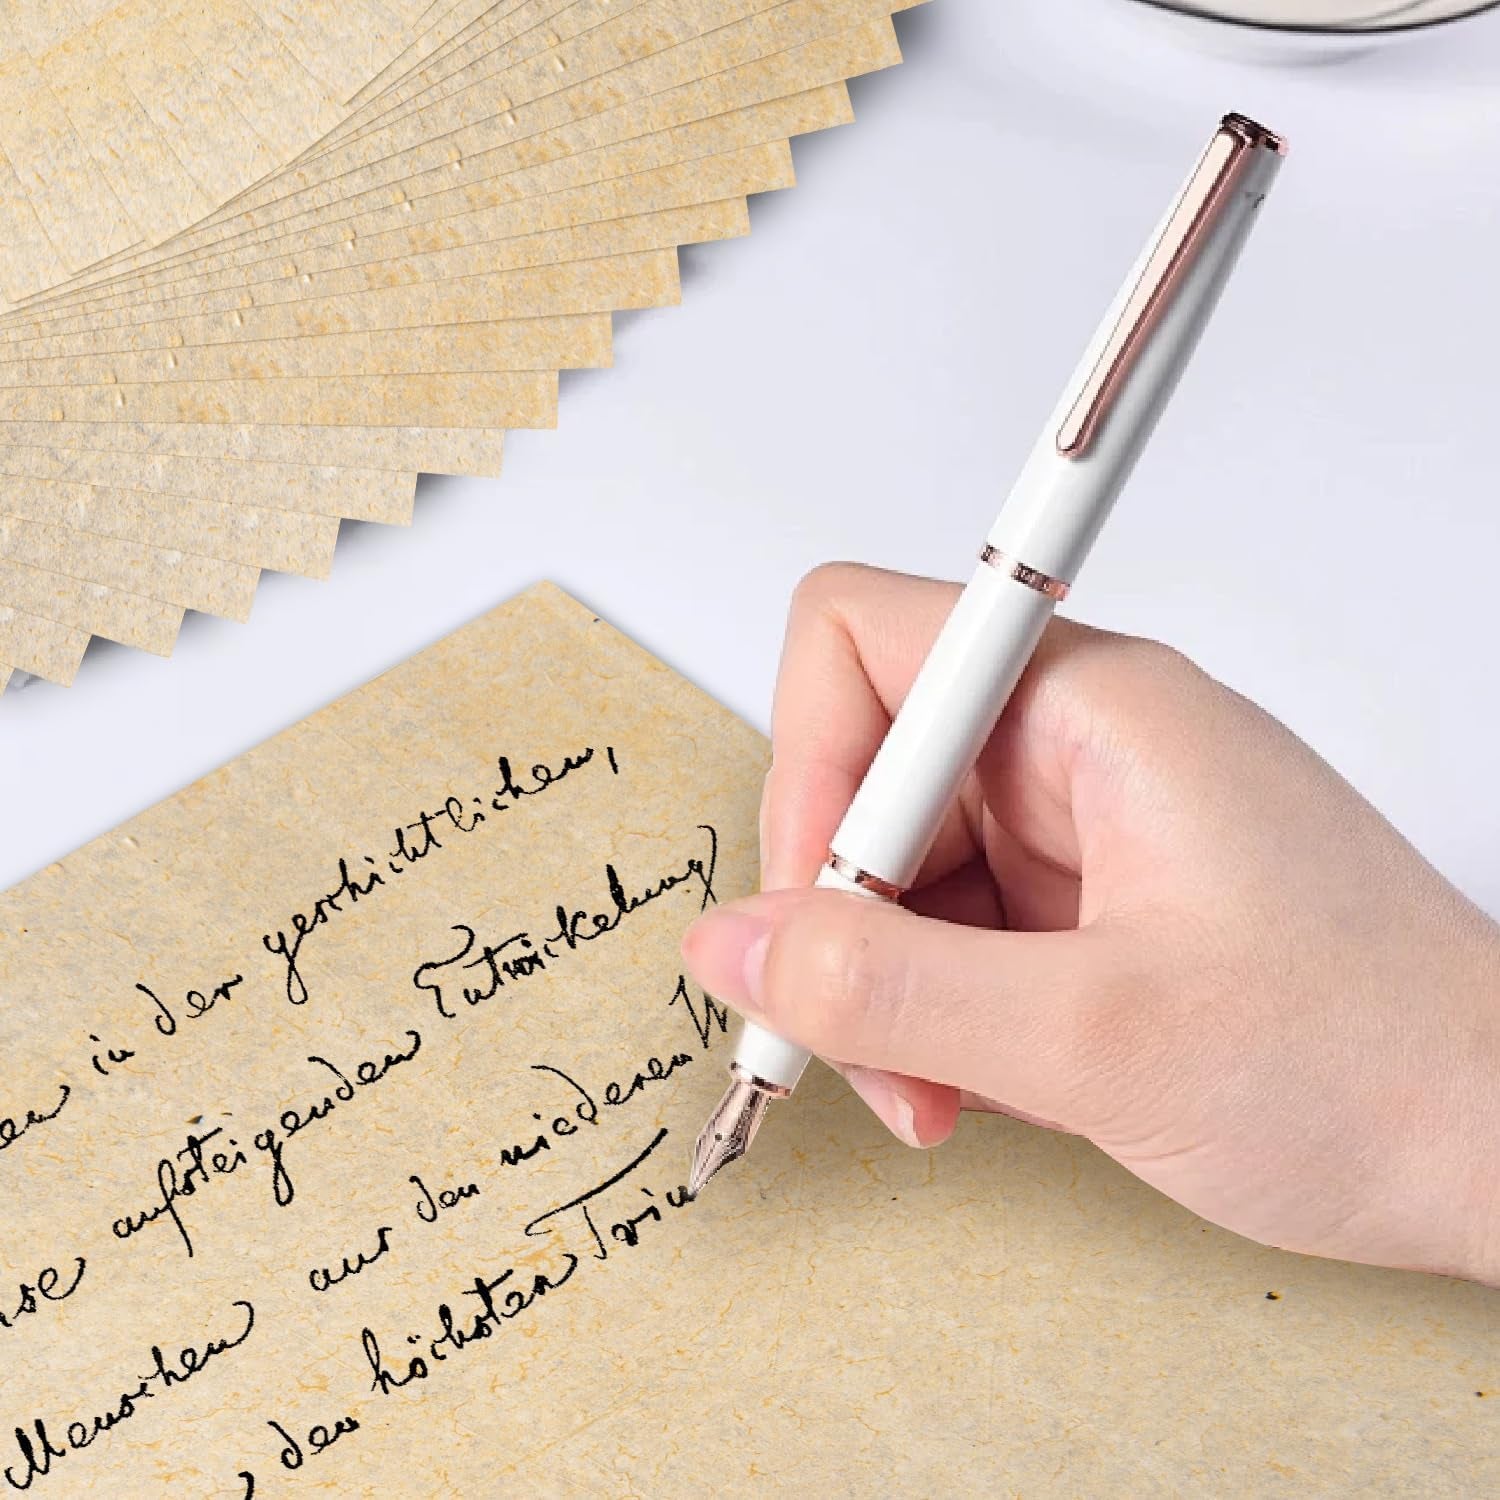 en in der geschichtlichen,
aufsteigenden Entwickelung
Menschen aus den niederen
, den höchsten Trin